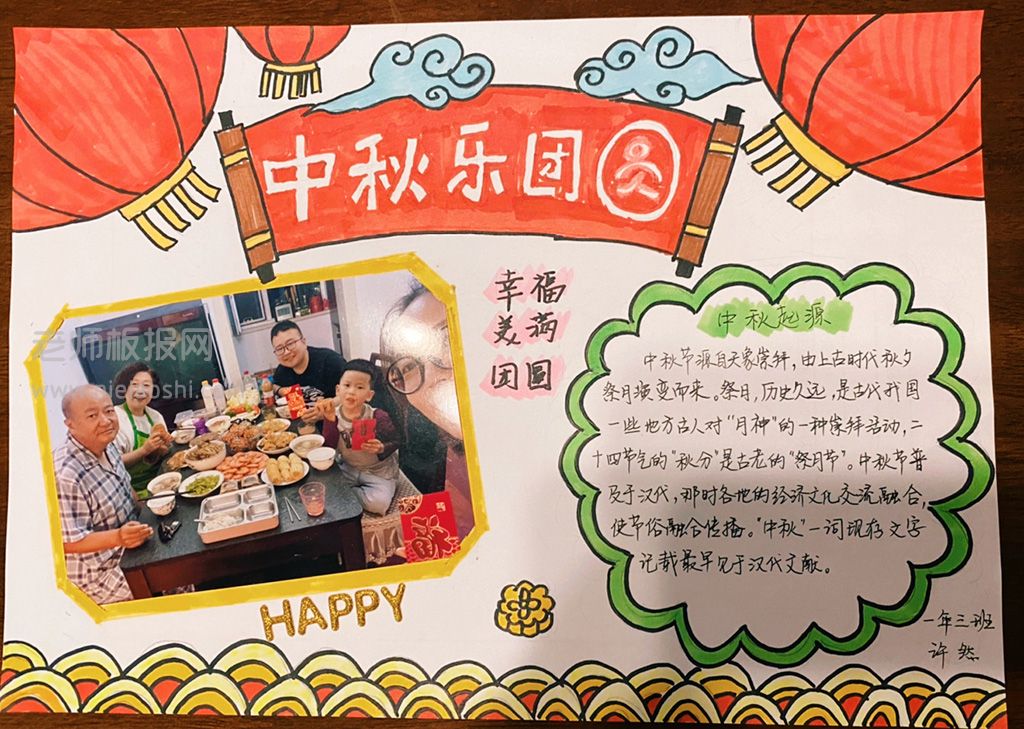 中秋乐团圆
幸福
美满
团圆
老师板报网
中秋起源
中秋节源自天象崇拜,由上古时代秋夕
祭月演变而来。祭日,历史久远,是古代我国
一些地方古人对“月神”的一种崇拜活动,二
十四节气的“秋分”是古老的“祭月节”。中秋节普
及于汉代,那时各地的经济文化交流融合,
使节俗融合传播。“中秋”一词现存文字
记载最早见于汉代文献。
HAPPY
一年三班
许然